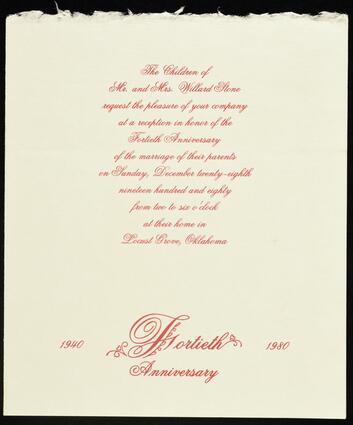 The Children of
Mr. and Mrs. Willard Stone
request the pleasure of your company
at a reception in honor of the
Fortieth Anniversary
of the marriage of their parents
on Sunday, December twenty-eighth
nineteen hundred and eighty
from two to six o'clock
at their home in
Locust Grove, Oklahoma
1940 Fortieth 1980
Anniversary